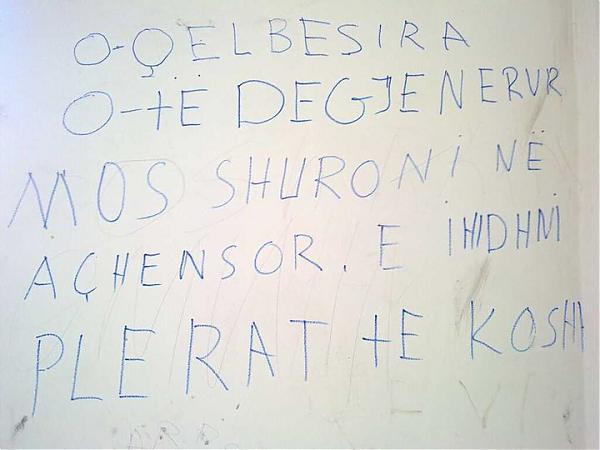 O-ÇËLBESIRA
O-TË DEGJENERUR
MOS SHURONI NË
AÇHENSOR. E IHIDHNI
PLERAT TE KOSHI